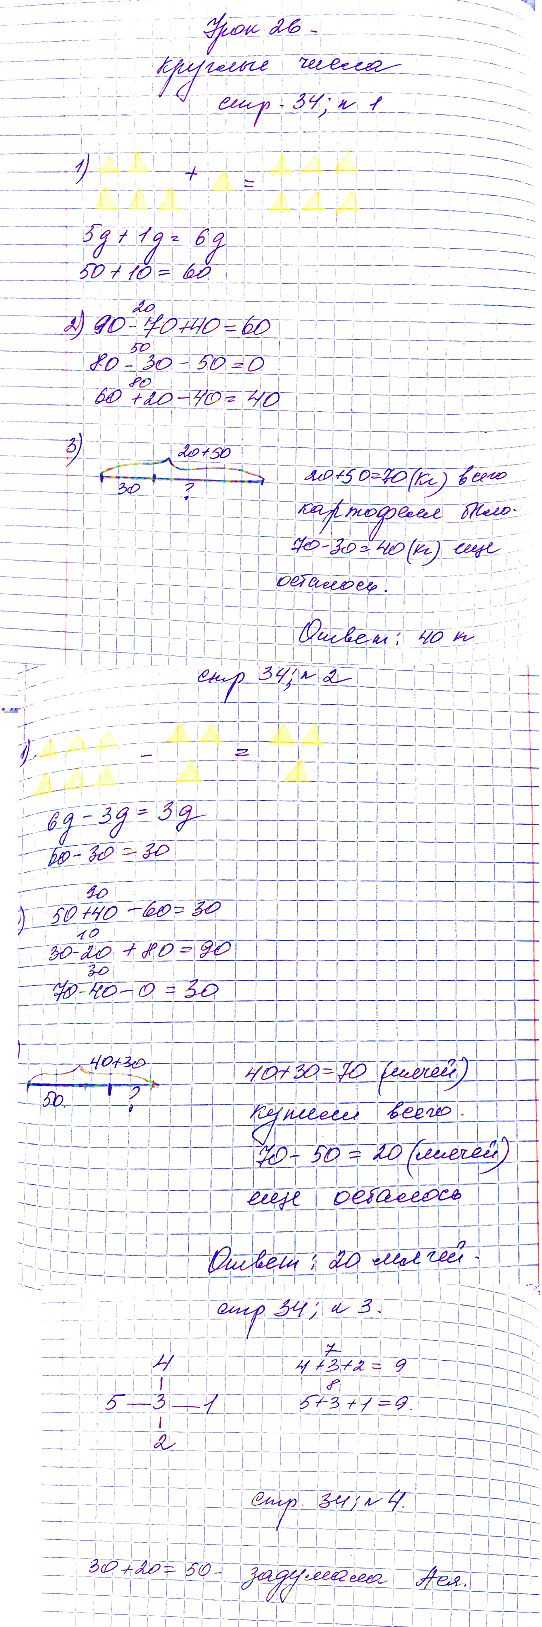 Урок 26.
Круглые числа
стр. 34; n 1
1)
+ =
5д + 1д = 6д
50 + 10 = 60
20
2) 90 - 70 + 40 = 60
50
80 - 30 - 50 = 0
80
60 + 20 - 40 = 40
3)
20+50
30 ?
20+50=70 (кг) всего
картофеля было.
70-30=40 (кг) еще
осталось.
Ответ: 40 к
стр 34; n 2
1).
- =
6д - 3д = 3д
60 - 30 = 30
90
) 50 + 40 - 60 = 30
10
30 - 20 + 80 = 90
30
70 - 40 - 0 = 30
)
40+30
50 ?
40+30=70 (мячей)
купили всего.
70 - 50 = 20 (мячей)
еще осталось
Ответ: 20 мячей.
стр 34; n 3.
4
5 — 3 — 1
2
7
4+3+2 = 9
8
5+3+1=9.
стр. 34; n 4.
30+20= 50- задумала Ася.